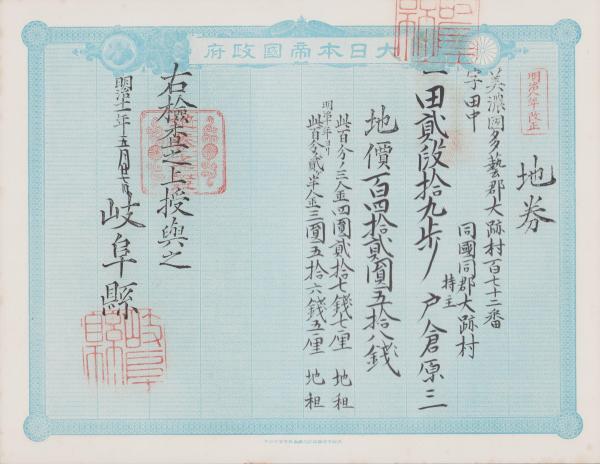 大日本帝國政府
明治八年改正
地券
美濃國多藝郡大跡村百七十二番
字田中
同國同郡大跡村
一田貳段拾九歩
持主
戸倉原三
地價百四拾貳圓五拾八錢
此百分ノ三金四圓貳拾七錢七厘 地租
明治十年ヨリ
此百分ノ貳ヶ半金三圓五拾六錢五厘 地租
右檢査之上授與之
明治十一年五月廿
岐阜縣
岐阜縣